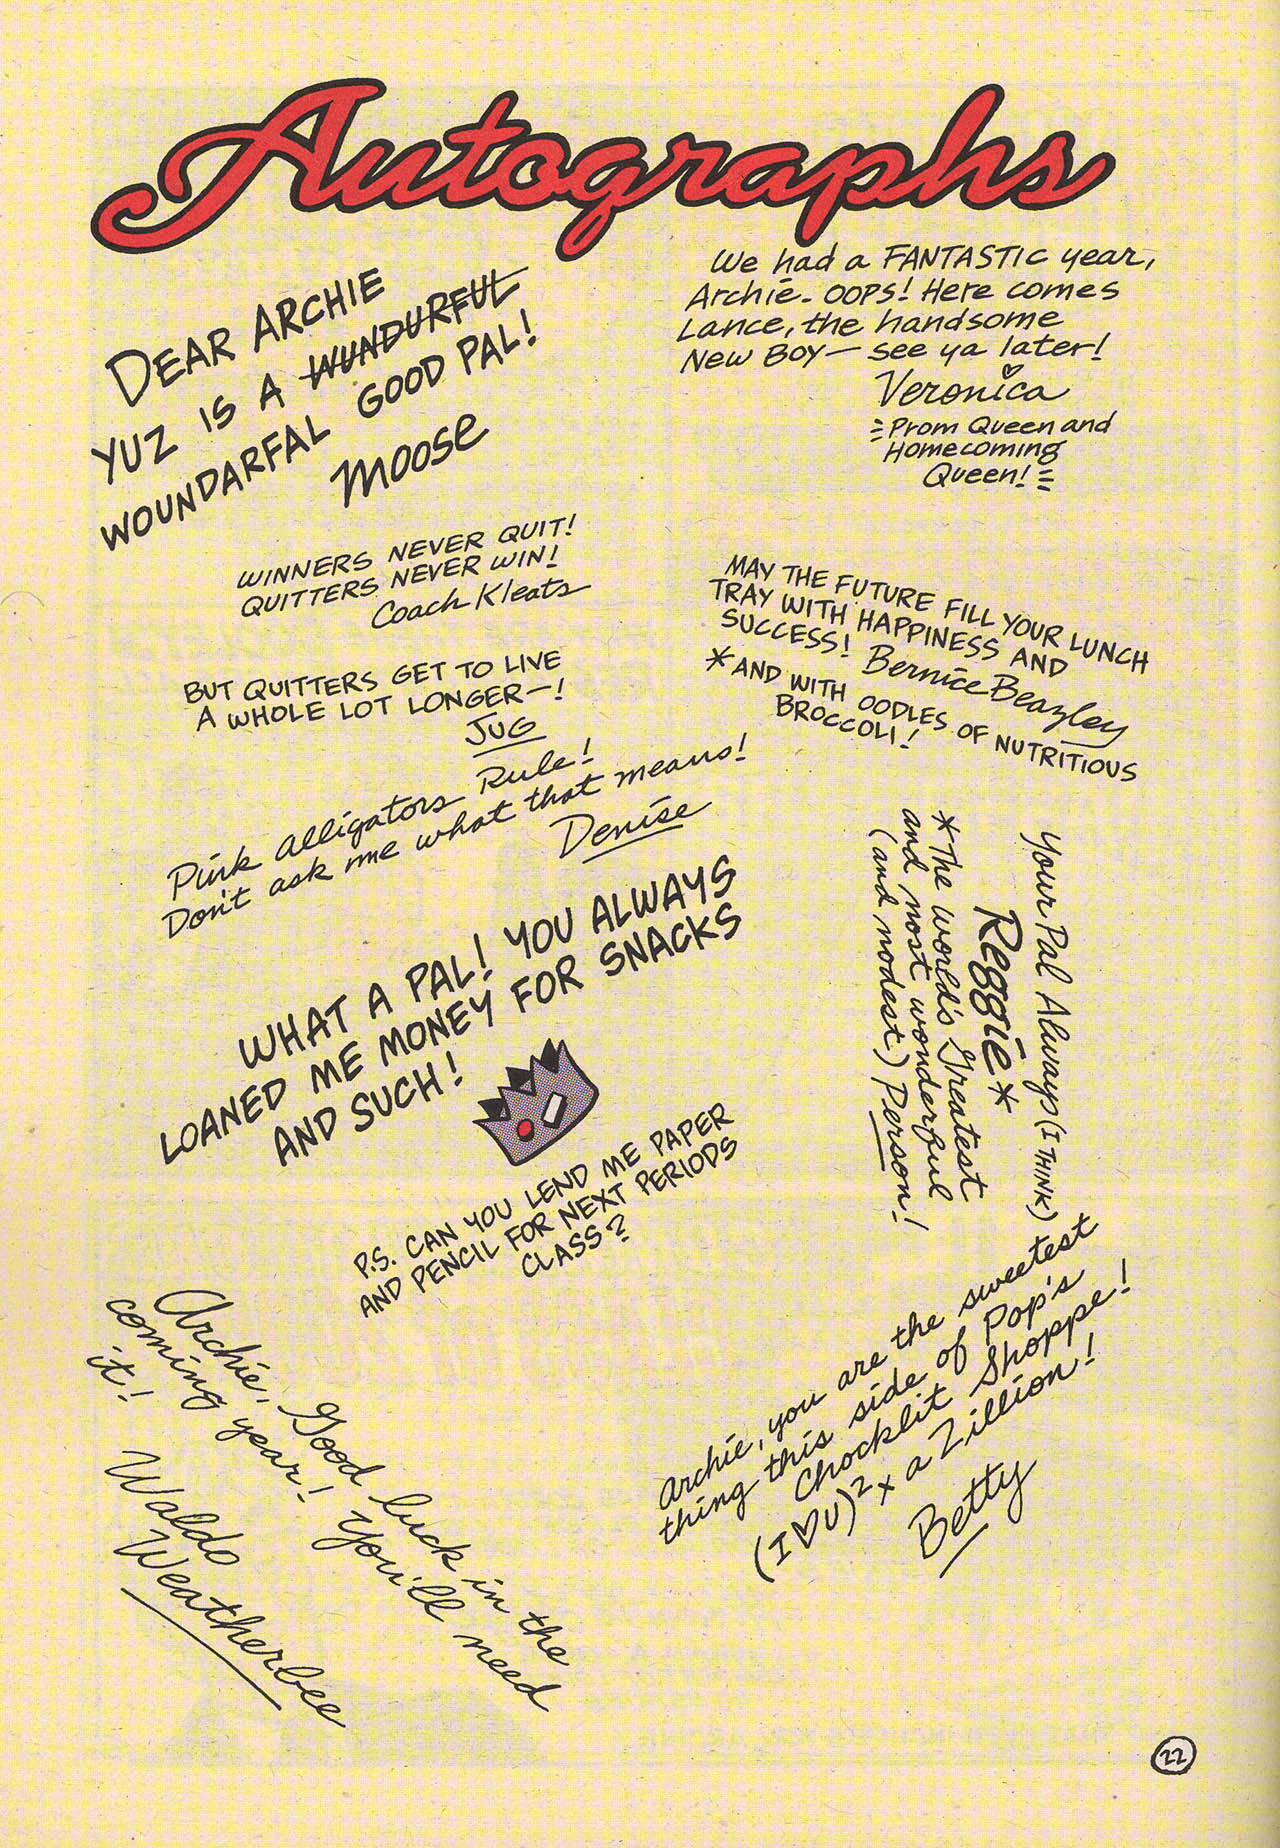 Autographs
DEAR ARCHIE
YUZ IS A WUNDURFUL
WOUNDARFAL GOOD PAL!
MOOSE
We had a FANTASTIC year,
Archie- OOPS! Here comes
Lance, the handsome
New Boy— see ya later!
Veronica
Prom Queen and
Homecoming
Queen!
WINNERS NEVER QUIT!
QUITTERS NEVER WIN!
Coach Kleats
BUT QUITTERS GET TO LIVE
A WHOLE LOT LONGER—!
JUG
MAY THE FUTURE FILL YOUR LUNCH
TRAY WITH HAPPINESS AND
SUCCESS! Bernice Beazley
*AND WITH OODLES OF NUTRITIOUS
BROCCOLI!
Pink alligators Rule!
Don't ask me what that means!
Denise
Your Pal Always (I THINK)
Reggie*
*The world's Greatest
and most wonderful
(and modest) Person!
WHAT A PAL! YOU ALWAYS
LOANED ME MONEY FOR SNACKS
AND SUCH!
P.S. CAN YOU LEND ME PAPER
AND PENCIL FOR NEXT PERIODS
CLASS?
Archie, you are the sweetest
thing this side of Pop's
Chocklit Shoppe!
(I♡U)² x a Zillion!
Betty
Archie, Good luck in the
coming year! You'll need
it!
Waldo
Weatherbee
22